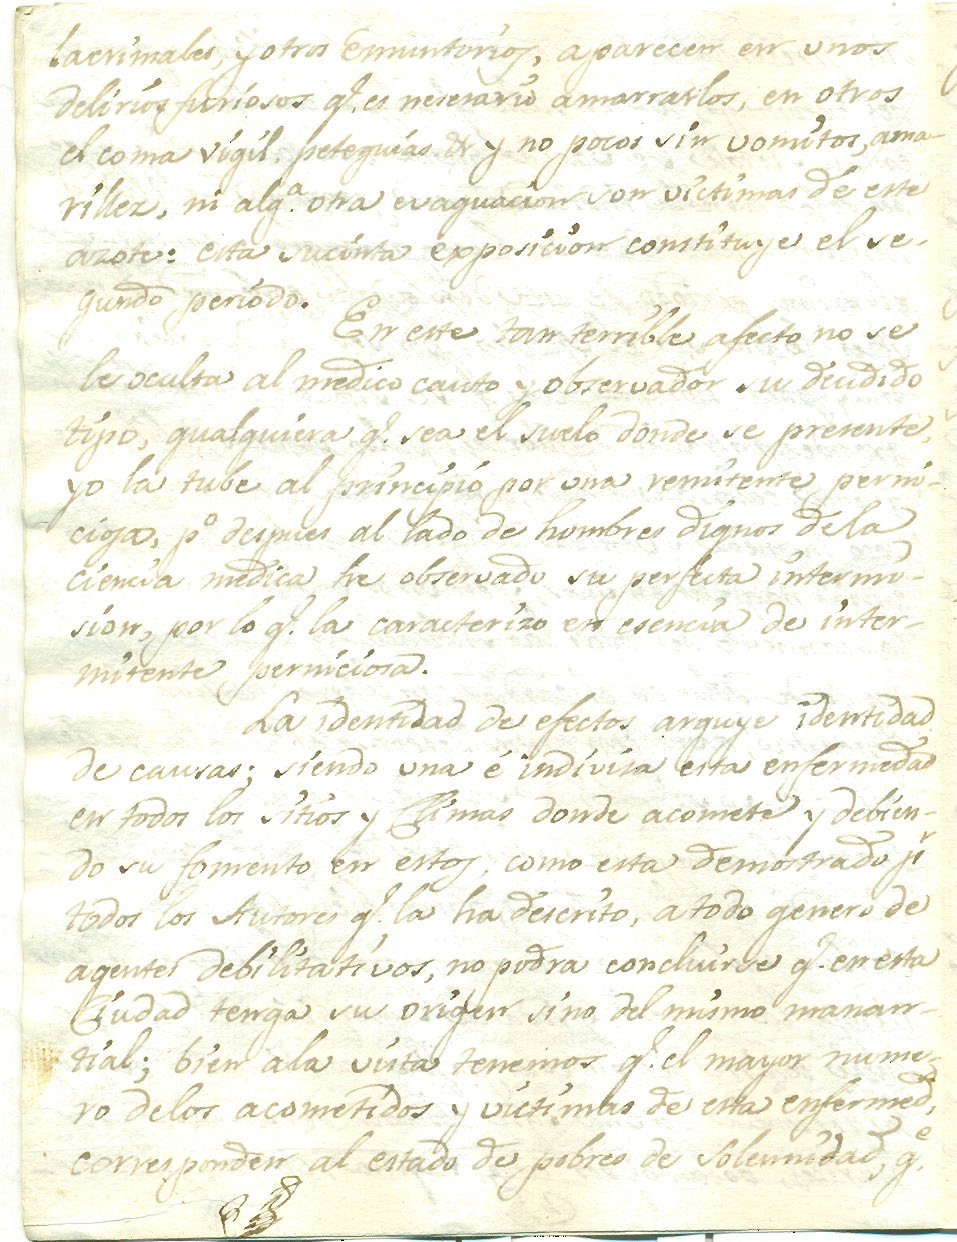 lacrimales, y otros Emuntorios, aparecen en unos
delirios furiosos q.e es nesesario amarrarlos, en otros
el coma vigil, petequias &. y no pocos sin vomitos, ama-
rillez, ni alg.a otra evaquacion son victimas de este
azote: esta sucinta exposicion constituye el se-
gundo período.
En este tan terrible afecto no se
le oculta al medico cauto y observador su decidido
tipo, qualquiera q.e sea el suelo donde se presente,
yo la tube al principio por una remitente perni-
ciosa, p.o despues al lado de hombres dignos de la
ciencia medica he observado su perfecta intermi-
sion, por lo q.e la caracterizo en esencia de inter-
mitente perniciosa.
La identidad de efectos arguye identidad
de causas; siendo una é indivisa esta enfermedad
en todos los sitios y Climas donde acomete y debien-
do su fomento en estos, como esta demostrado p.r
todos los Autores q.e la ha descrito, a todo genero de
agentes debilitativos, no podra concluirse q.e en esta
Ciudad tenga su origen sino del mismo manan-
tial; bien a la vista tenemos q.e el mayor nume-
ro de los acometidos y victimas de esta enfermed,
corresponden al estado de pobres de solemnidad, q.e